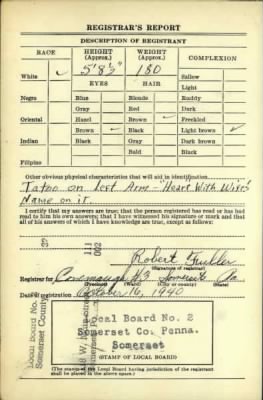 REGISTRAR'S REPORT
DESCRIPTION OF REGISTRANT
RACE HEIGHT (Approx.) WEIGHT (Approx.) COMPLEXION
White ✓ 5'8½" 180 Sallow
EYES HAIR Light
Negro Blue Blonde Ruddy
Gray Red Dark
Oriental Hazel Brown ✓ Freckled
Brown ✓ Black Light brown ✓
Indian Black Gray Dark brown
Bald Black
Filipino
Other obvious physical characteristics that will aid in identification
Tatoo on left Arm - "Heart With Wife's
Name on it.
I certify that my answers are true; that the person registered has read or has had
read to him his own answers; that I have witnessed his signature or mark and that
all of his answers of which I have knowledge are true, except as follows:
Robert
(Signature of registrar)
Registrar for Conemaugh #3 Somerset Pa
(Precinct) (Ward) (City or county) (State)
Date of registration October 16, 1940
Local Board No. 2
Somerset Co. Penna.
Somerset
(STAMP OF LOCAL BOARD)
(The stamp of the Local Board having jurisdiction of the registrant
shall be placed in the above space.)
Local Board No.
Somerset County
111
002